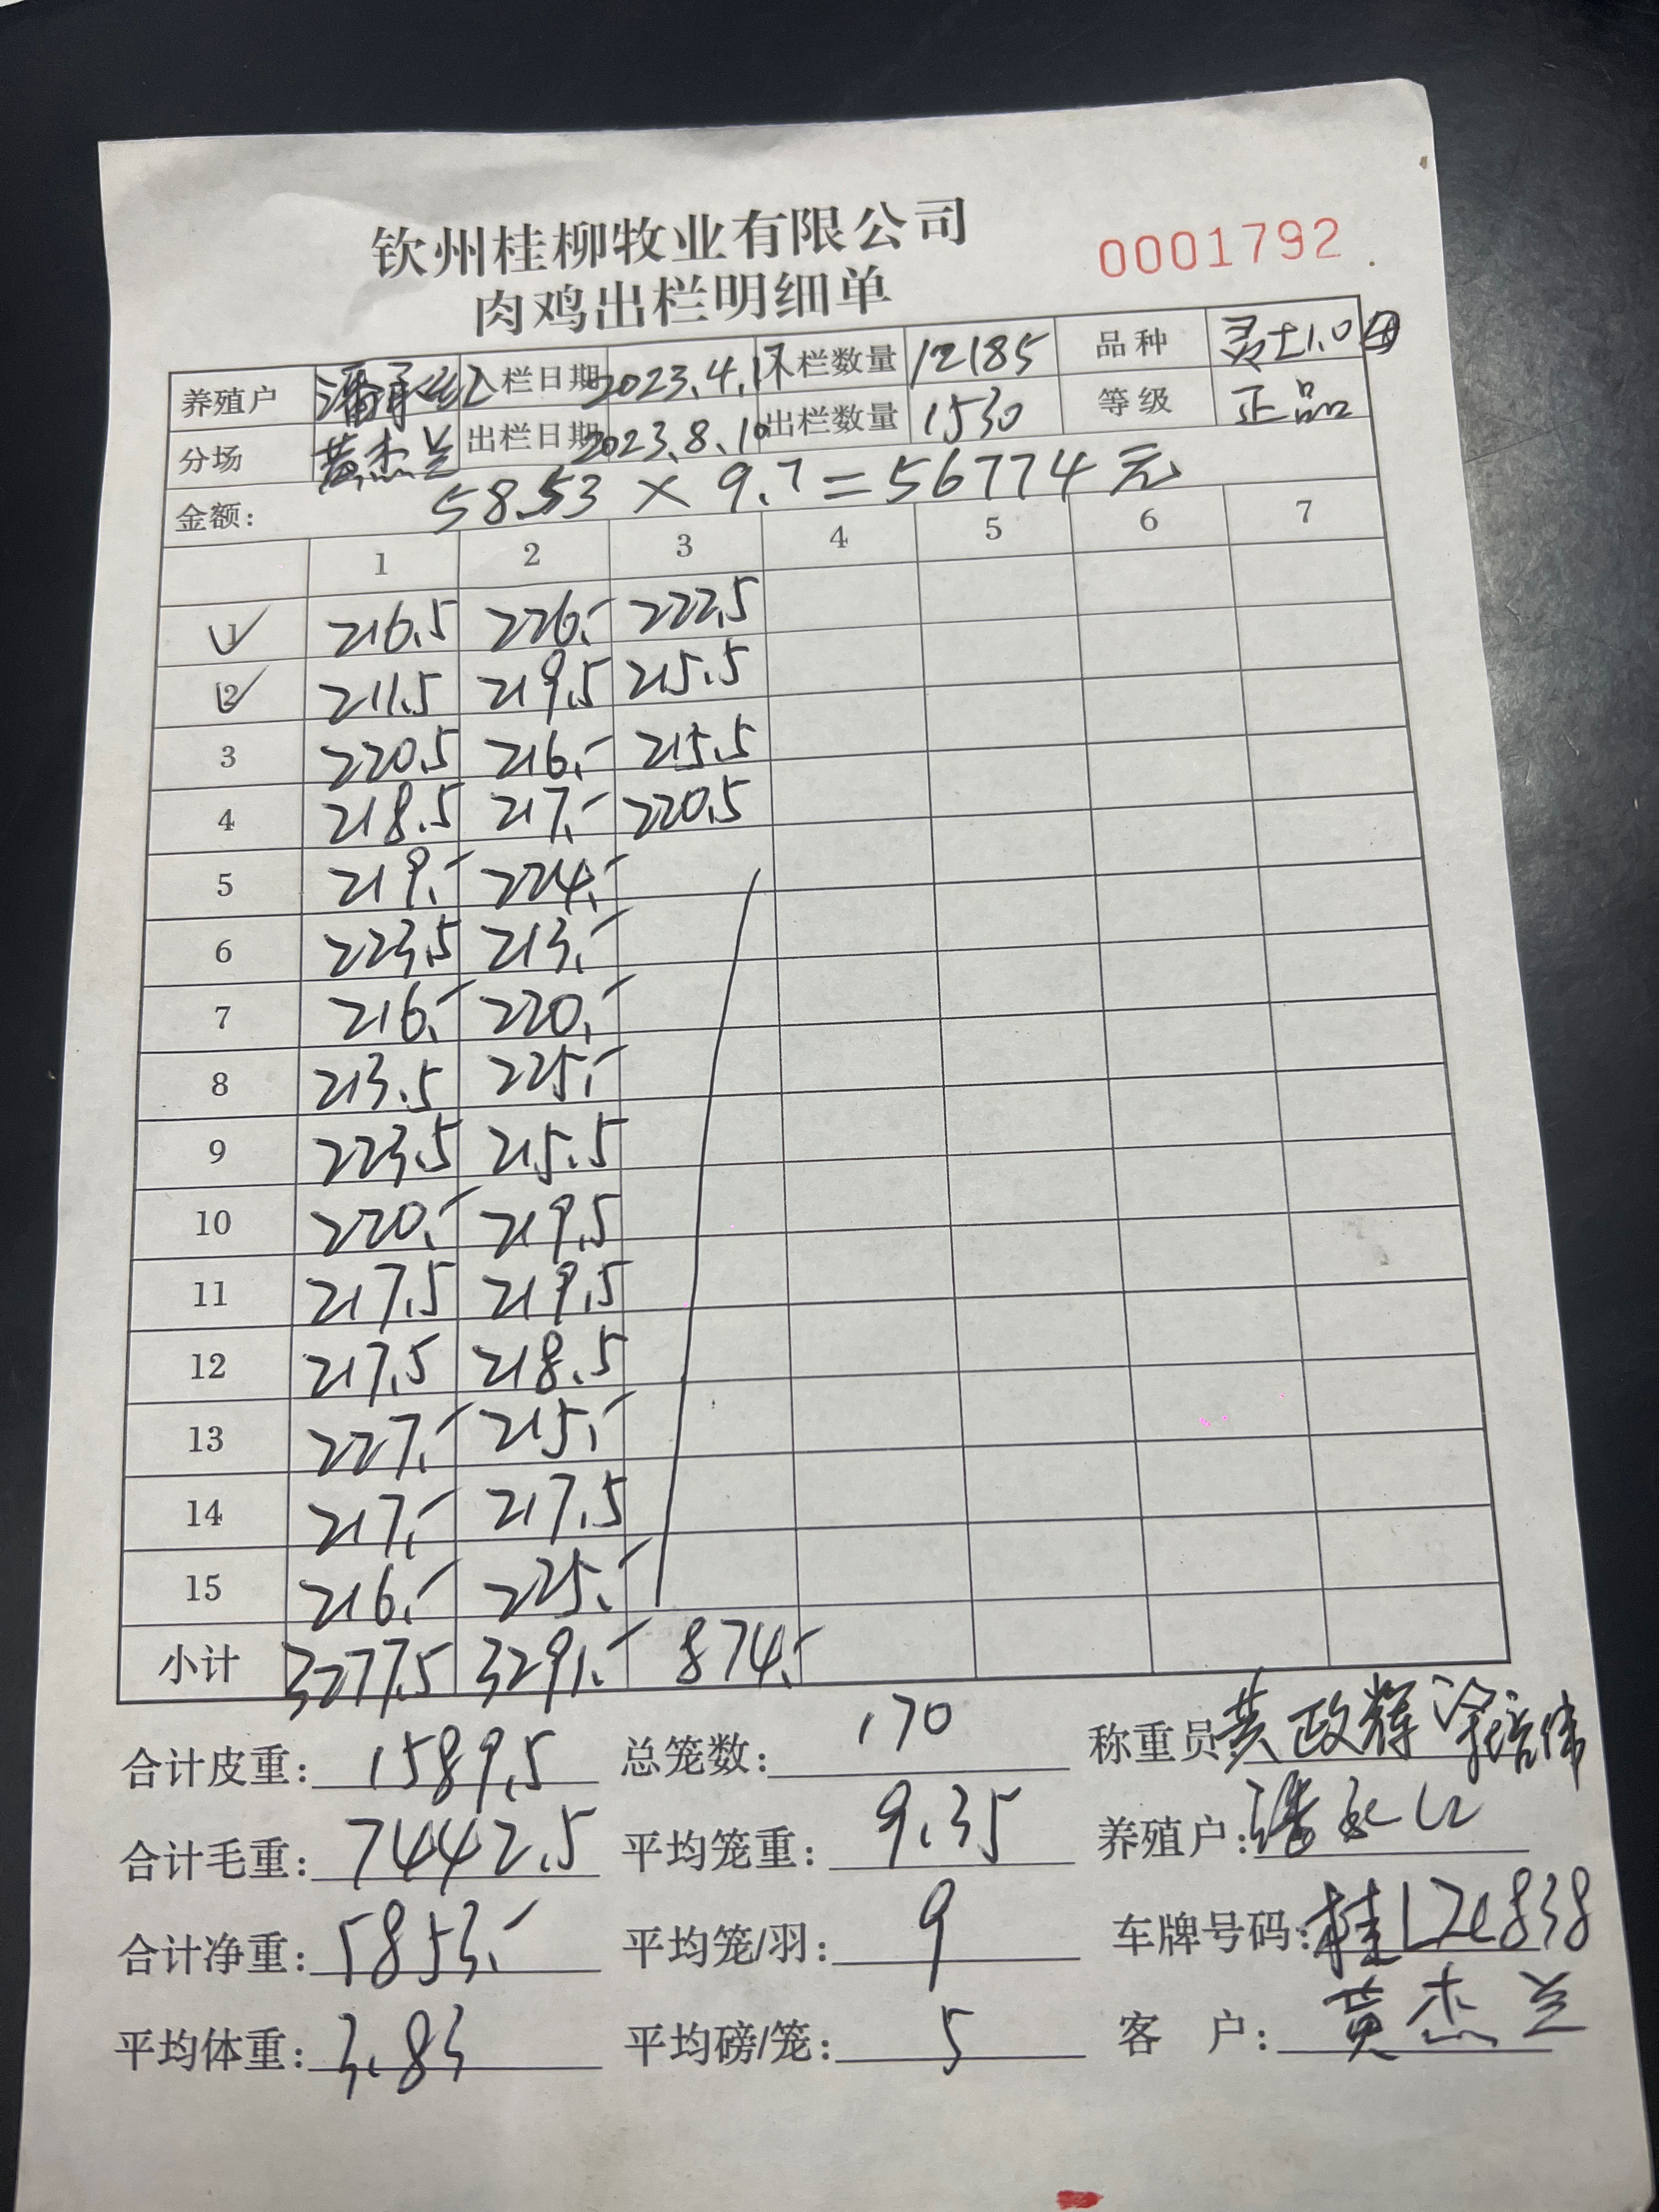 钦州桂柳牧业有限公司
0001792
肉鸡出栏明细单
养殖户 入栏日期 2023.4.1 入栏数量 12185 品种
分场 黄杰兰 出栏日期 2023.8.10 出栏数量 1530 等级 正品
金额: 58.53 × 9.7 = 56774元
1 2 3 4 5 6 7
1 216.5 226.- 222.5
2 211.5 219.5 215.5
3 220.5 216.- 215.5
4 218.5 217.- 220.5
5 219.- 224.-
6 223.5 213.-
7 216.- 220.-
8 213.5 225.-
9 223.5 215.5
10 220.- 219.5
11 217.5 219.5
12 217.5 218.5
13 227.- 215.-
14 217.- 217.5
15 216.- 225.-
小计 3277.5 3291.- 874.-
合计皮重: 1589.5 总笼数: 170 称重员 黄政辉
合计毛重: 7442.5 平均笼重: 9.35 养殖户:
合计净重: 5853.- 平均笼/羽: 9 车牌号码:
平均体重: 3.83 平均磅/笼: 5 客户: 黄杰兰